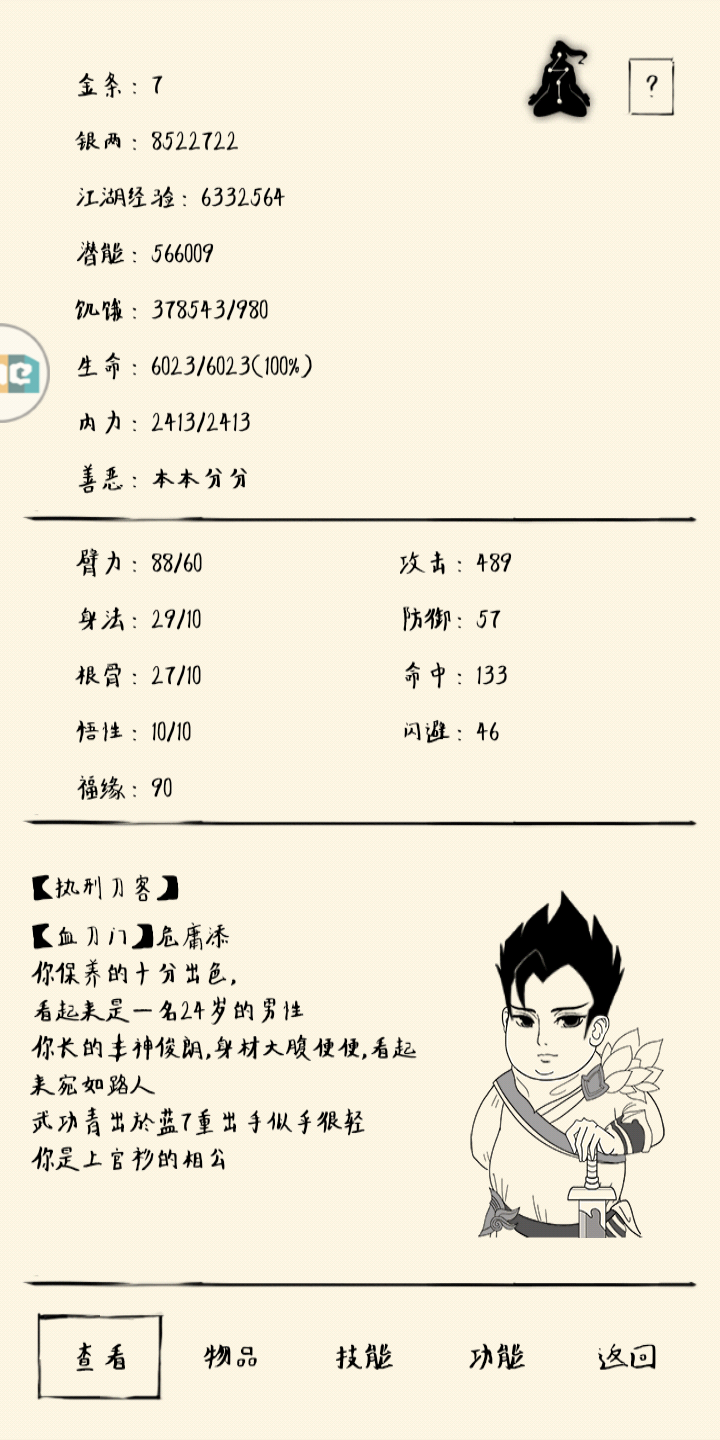 金条：7
?
银两：8522722
江湖经验：6332564
潜能：566009
饥饿：378543/980
生命：6023/6023(100%)
内力：2413/2413
善恶：本本分分
臂力：88/60
攻击：489
身法：29/10
防御：57
根骨：27/10
命中：133
悟性：10/10
闪避：46
福缘：90
【执刑刀客】
【血刀门】危庸添
你保养的十分出色,
看起来是一名24岁的男性
你长的丰神俊朗,身材大腹便便,看起
来宛如路人
武功青出於蓝7重出手似乎很轻
你是上官衫的相公
查看
物品
技能
功能
返回